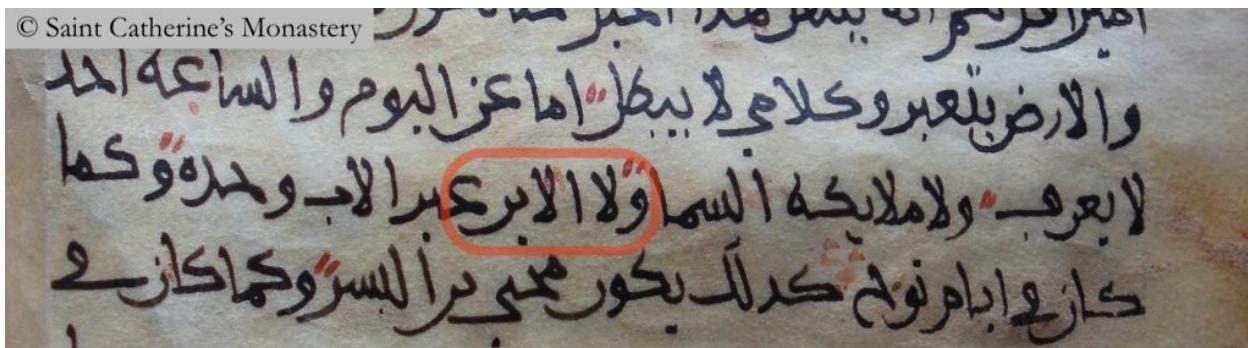 © Saint Catherine's Monastery
هدا
والارض يتعبر وكلامي لا يبطل اما عن اليوم والساعه احد
لا يعرف ولا ملايكه السما ولا الابن غير الاب وحده وكما
كان في ايام نوح كدلك يكون مجي بن البشر وكما كان في